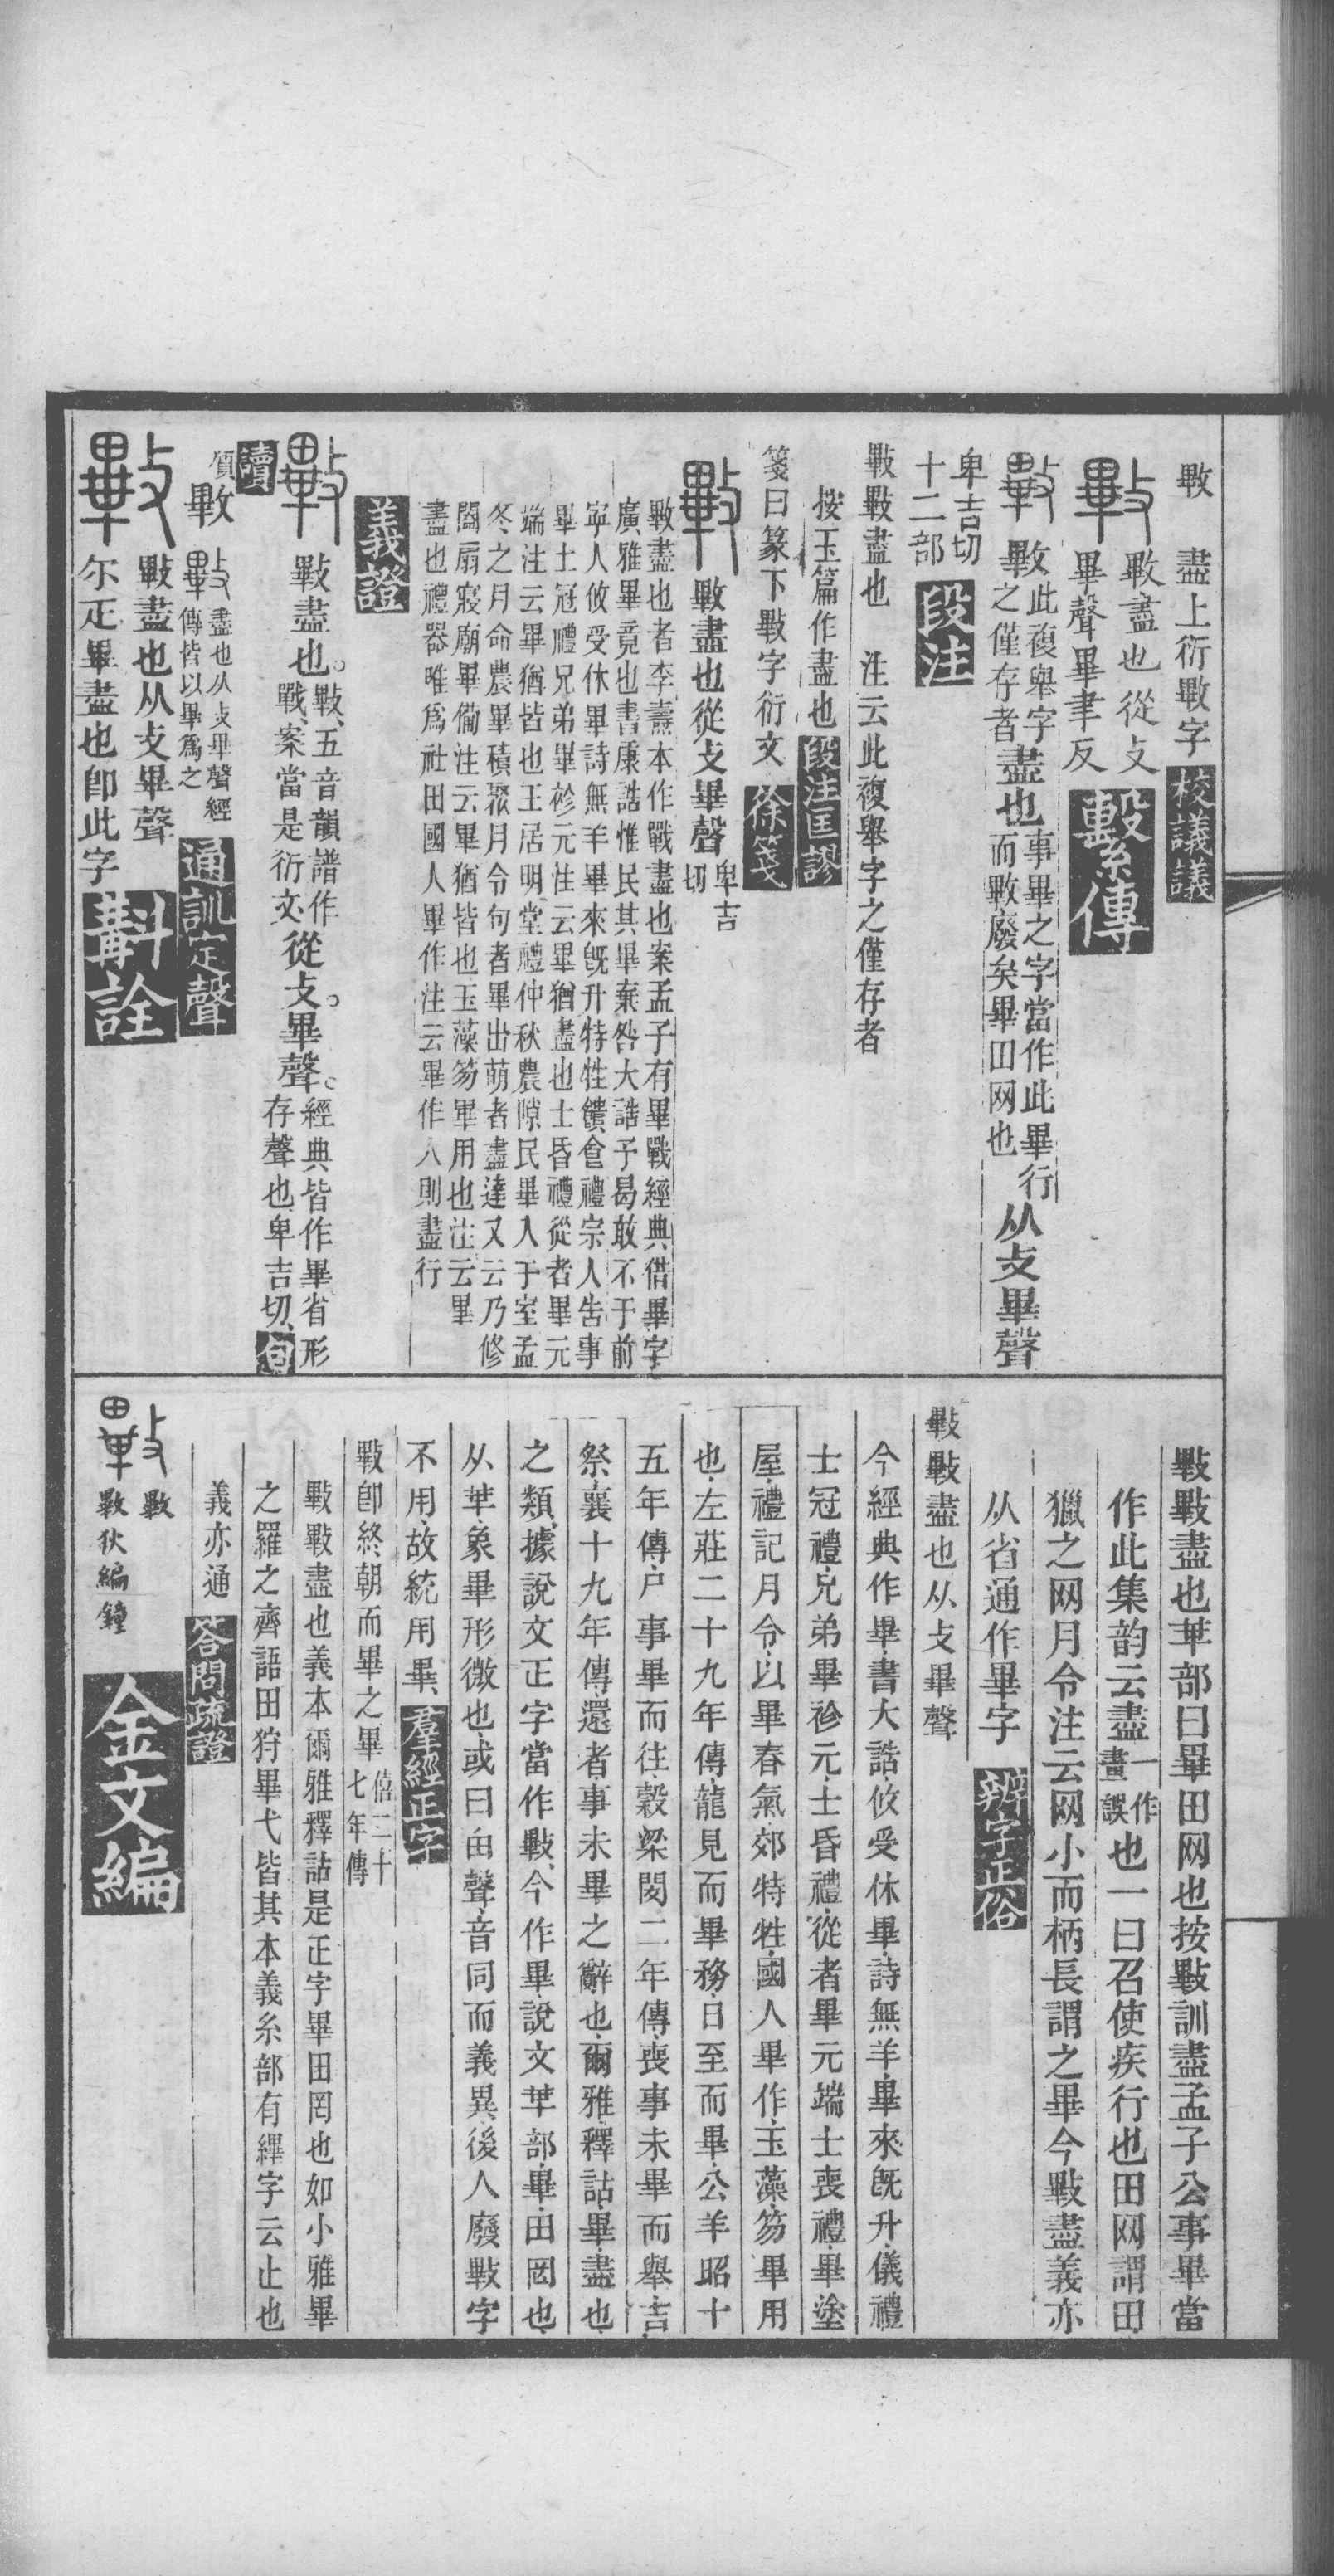 㪤　盡上衍㪤字校議議
㪤盡也從攴
畢聲畢聿反
繫傳
㪤此複舉字
之僅存者盡也事畢之字當作此畢行
而㪤廢矣畢田网也从攴畢聲
卑吉切
十二部段注
㪤㪤盡也　注云此複舉字之僅存者
按玉篇作盡也段注匡謬
箋曰篆下㪤字衍文徐箋
㪤盡也從攴畢聲卑吉
切
㪤盡也者李燾本作戰盡也案孟子有畢戰經典借畢字
廣雅畢竟也書康誥惟民其畢棄咎大誥予曷敢不于前
寧人攸受休畢詩無羊畢來旣升特牲饋食禮宗人告事
畢士冠禮兄弟畢袗元注云畢猶盡也士昏禮從者畢元
端注云畢猶皆也王居明堂禮仲秋農隙民畢入于室孟
冬之月命農畢積聚月令句者畢出萌者盡達又云乃修
闔扇寢廟畢僃注云畢猶皆也玉藻笏畢用也注云畢
盡也禮器唯爲社田國人畢作注云畢作人則盡行
義證
㪤盡也㪤五音韻譜作
戰案當是衍文從攴畢聲經典皆作畢省形
存聲也卑吉切句
讀
㪤盡也从攴畢聲經
傳皆以畢爲之
通訓定聲
㪤盡也从攴畢聲
尔疋畢盡也卽此字斠詮
㪤㪤盡也𠦒部曰畢田网也按㪤訓盡孟子公事畢當
作此集韵云盡一作
畫誤也一曰召使疾行也田网謂田
獵之网月令注云网小而柄長謂之畢今㪤盡義亦
从省通作畢字辨字正俗
㪤㪤盡也从攴畢聲
今經典作畢書大誥攸受休畢詩無羊畢來旣升儀禮
士冠禮兄弟畢袗元士昏禮從者畢元端士喪禮畢塗
屋禮記月令以畢春氣郊特牲國人畢作玉藻笏畢用
也左莊二十九年傳龍見而畢務日至而畢公羊昭十
五年傳尸事畢而往穀梁閔二年傳喪事未畢而舉吉
祭襄十九年傳還者事未畢之辭也爾雅釋詁畢盡也
之類據說文正字當作㪤今作畢說文𠦒部畢田罔也
从𠦒象畢形微也或曰甶聲音同而義異後人廢㪤字
不用故統用畢羣經正字
㪤卽終朝而畢之畢僖二十
七年傳
㪤㪤盡也義本爾雅釋詁是正字畢田罔也如小雅畢
之羅之齊語田狩畢弋皆其本義糸部有縪字云止也
義亦通答問疏證
㪤
㪤狄編鐘
金文編